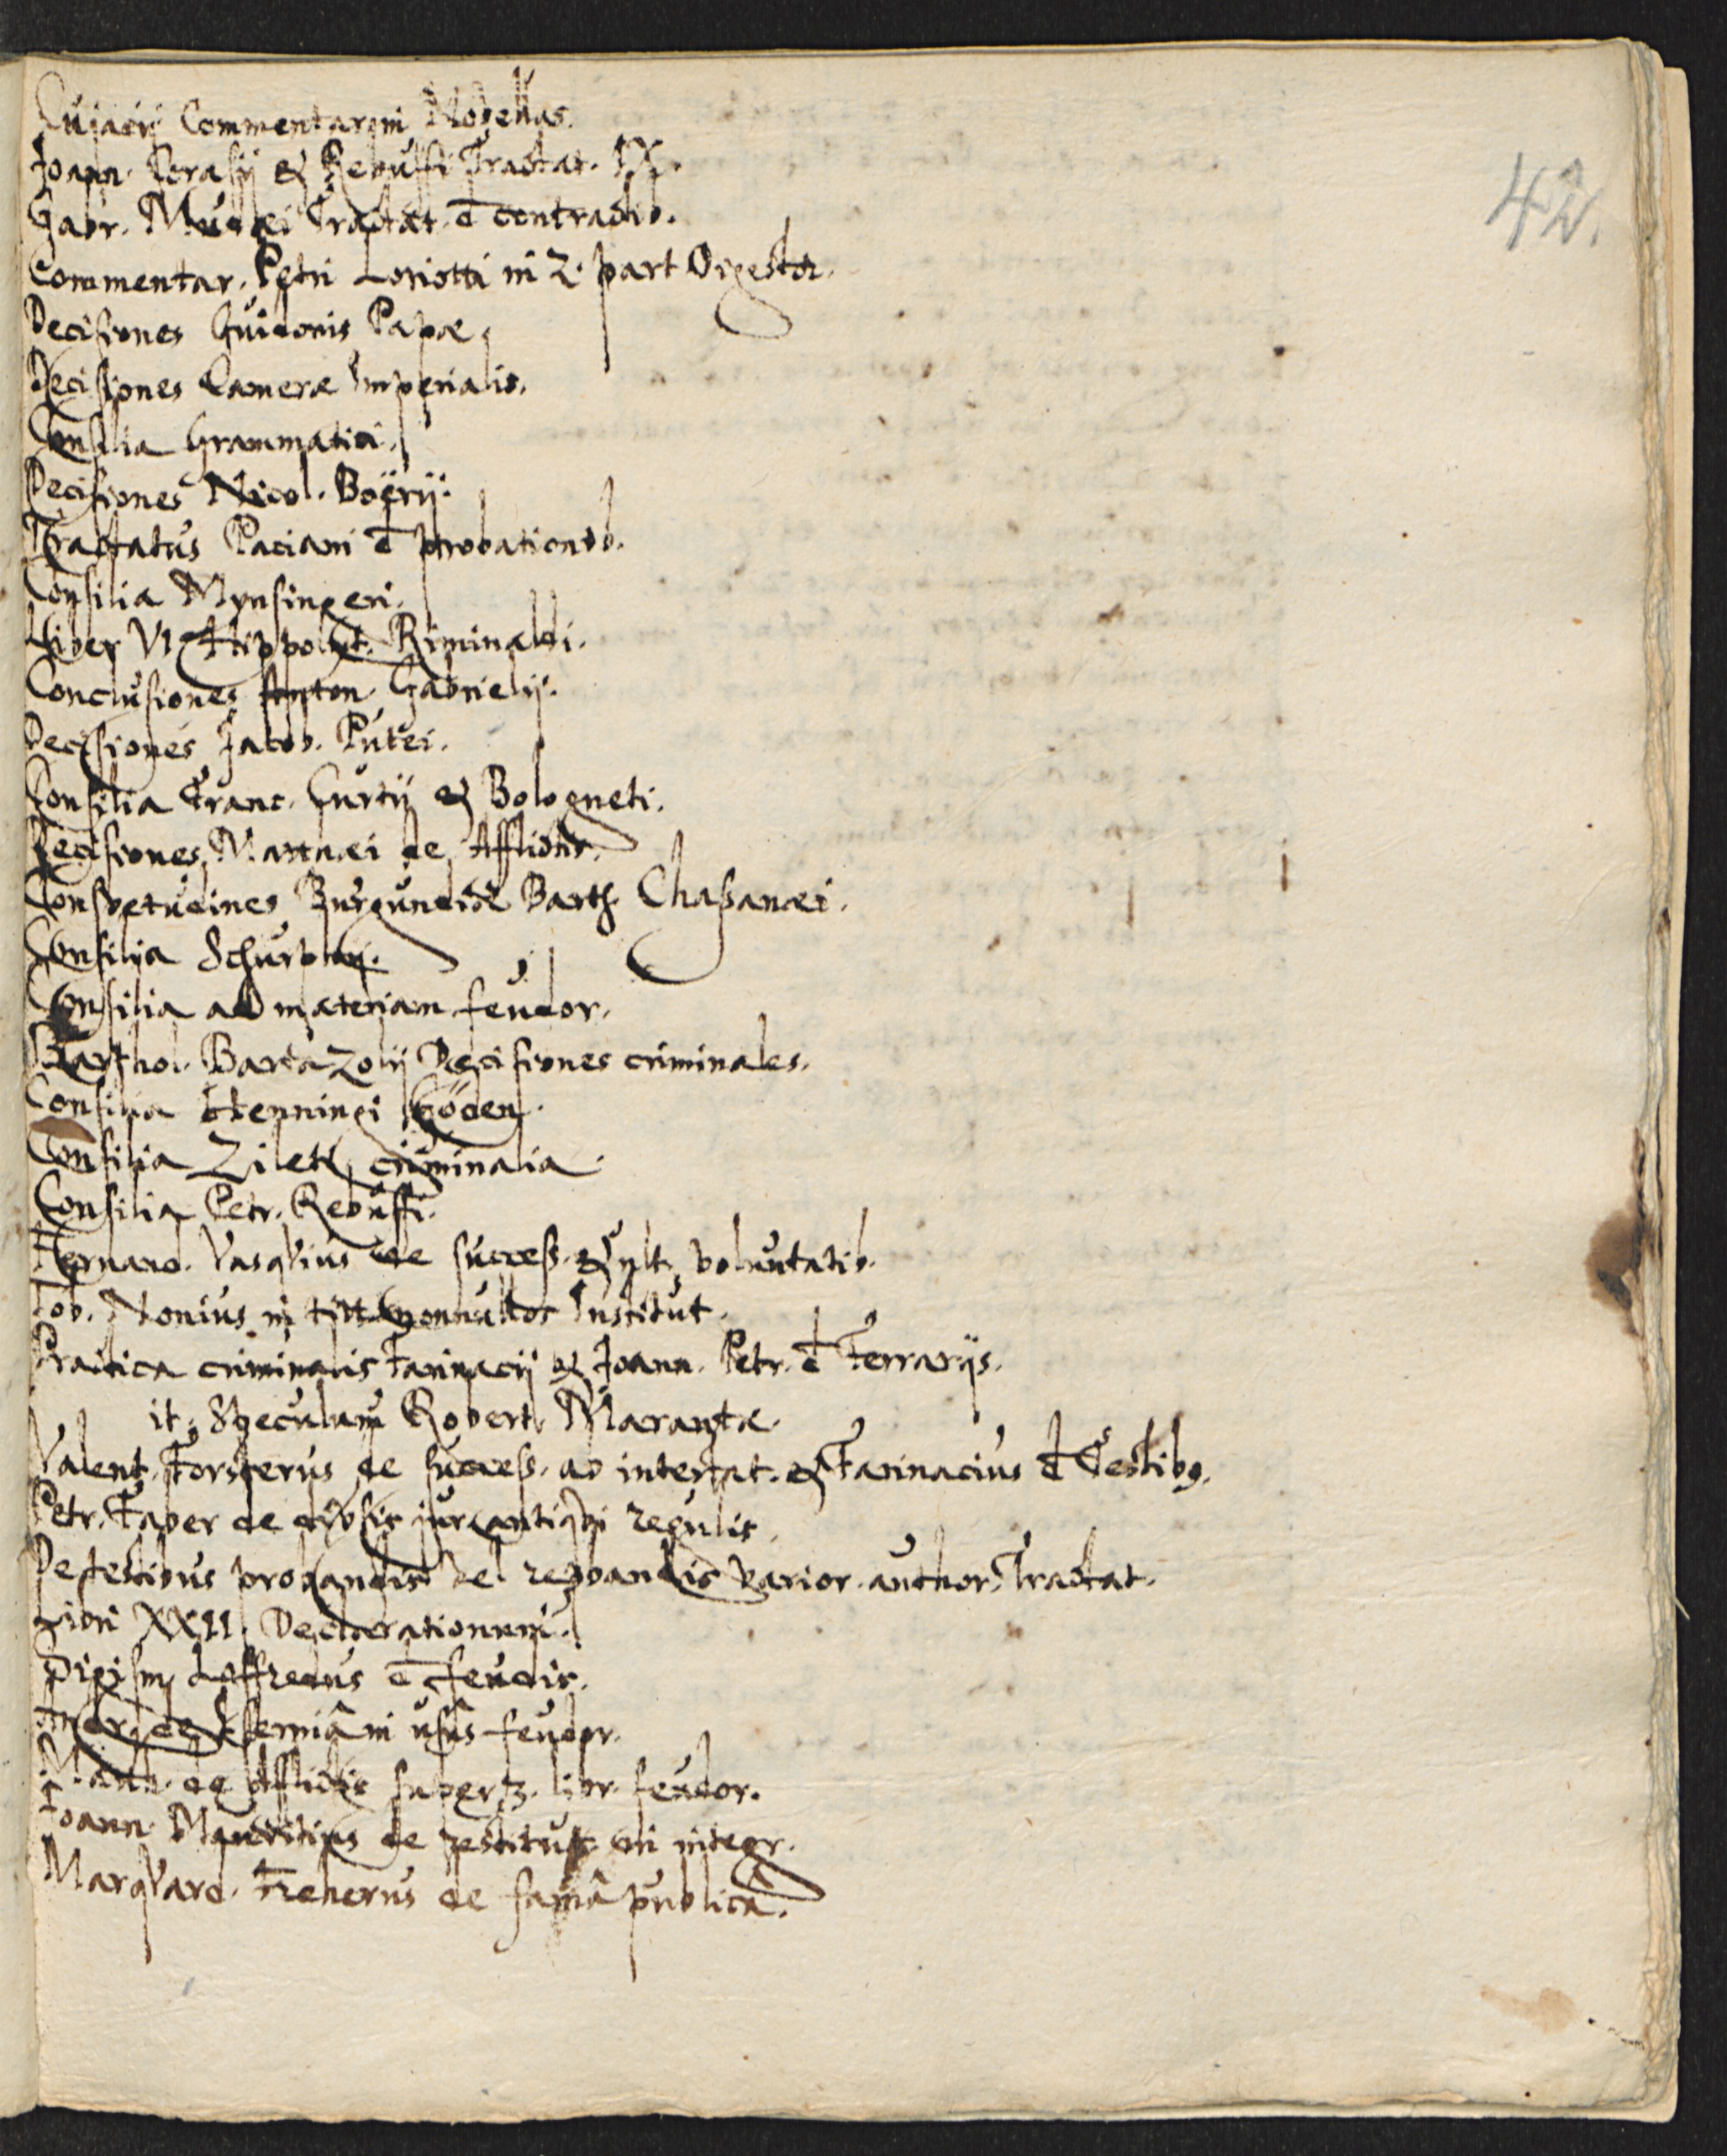 42.
Cujacij Commentar. in Novellas.
Joann. Corasij & Rebuffi Tractat. IX.
Gabr. Mudaei Tractat. d contractib.
Commentar. Petri Loriotti in 2. part Digestor.
Decisiones Guidonis Papae.
Decisiones Camerae Imperialis.
Consilia Grammatici.
Decisiones Nicol. Boërij.
Tractatus Paciani d probationib.
Consilia Mynsingeri.
Liber VI Hippolyt. Riminaldi.
Conclusiones Anton. Gabrielij.
Decisiones Jacob. Putei.
Consilia Franc. Curtij & Bologneti.
Decisiones Matthaei de Afflictis.
Consvetudines Burgundiae Barth. Chaßanaei.
Consilia Schurpfij.
Consilia ad materiam feudor.
Barthol. Bartazolij Decisiones criminales.
Consilia Henningi Göden.
Consilia Zileti criminalia.
Consilia Petr. Rebuffi.
Fernand. Vasqvius de succeß. & ult. voluntatib.
Tob. Nonius in titt. nonnullos Institut.
Practica criminalis Farinacij & Joann. Petr. d Ferrarijs.
it. Speculum Robert. Marantae.
Valent. Forsterus de succeß. ab intestat. & Farinacius d Testibus.
Petr. Faber de divsis jur. antiqvi regulis.
De testibus probandis vel repbandis varior. author. Tractat.
Libri XXII. Declarationum.
Sigism. Loffredus d feudis.
Andr. de Iserniâ in usûs feudor.
Matth. de Afflictis super 3. libr. feudor.
Joann. Mauritius de restitut. in integr.
Marqvard. Freherus de famâ publicâ.